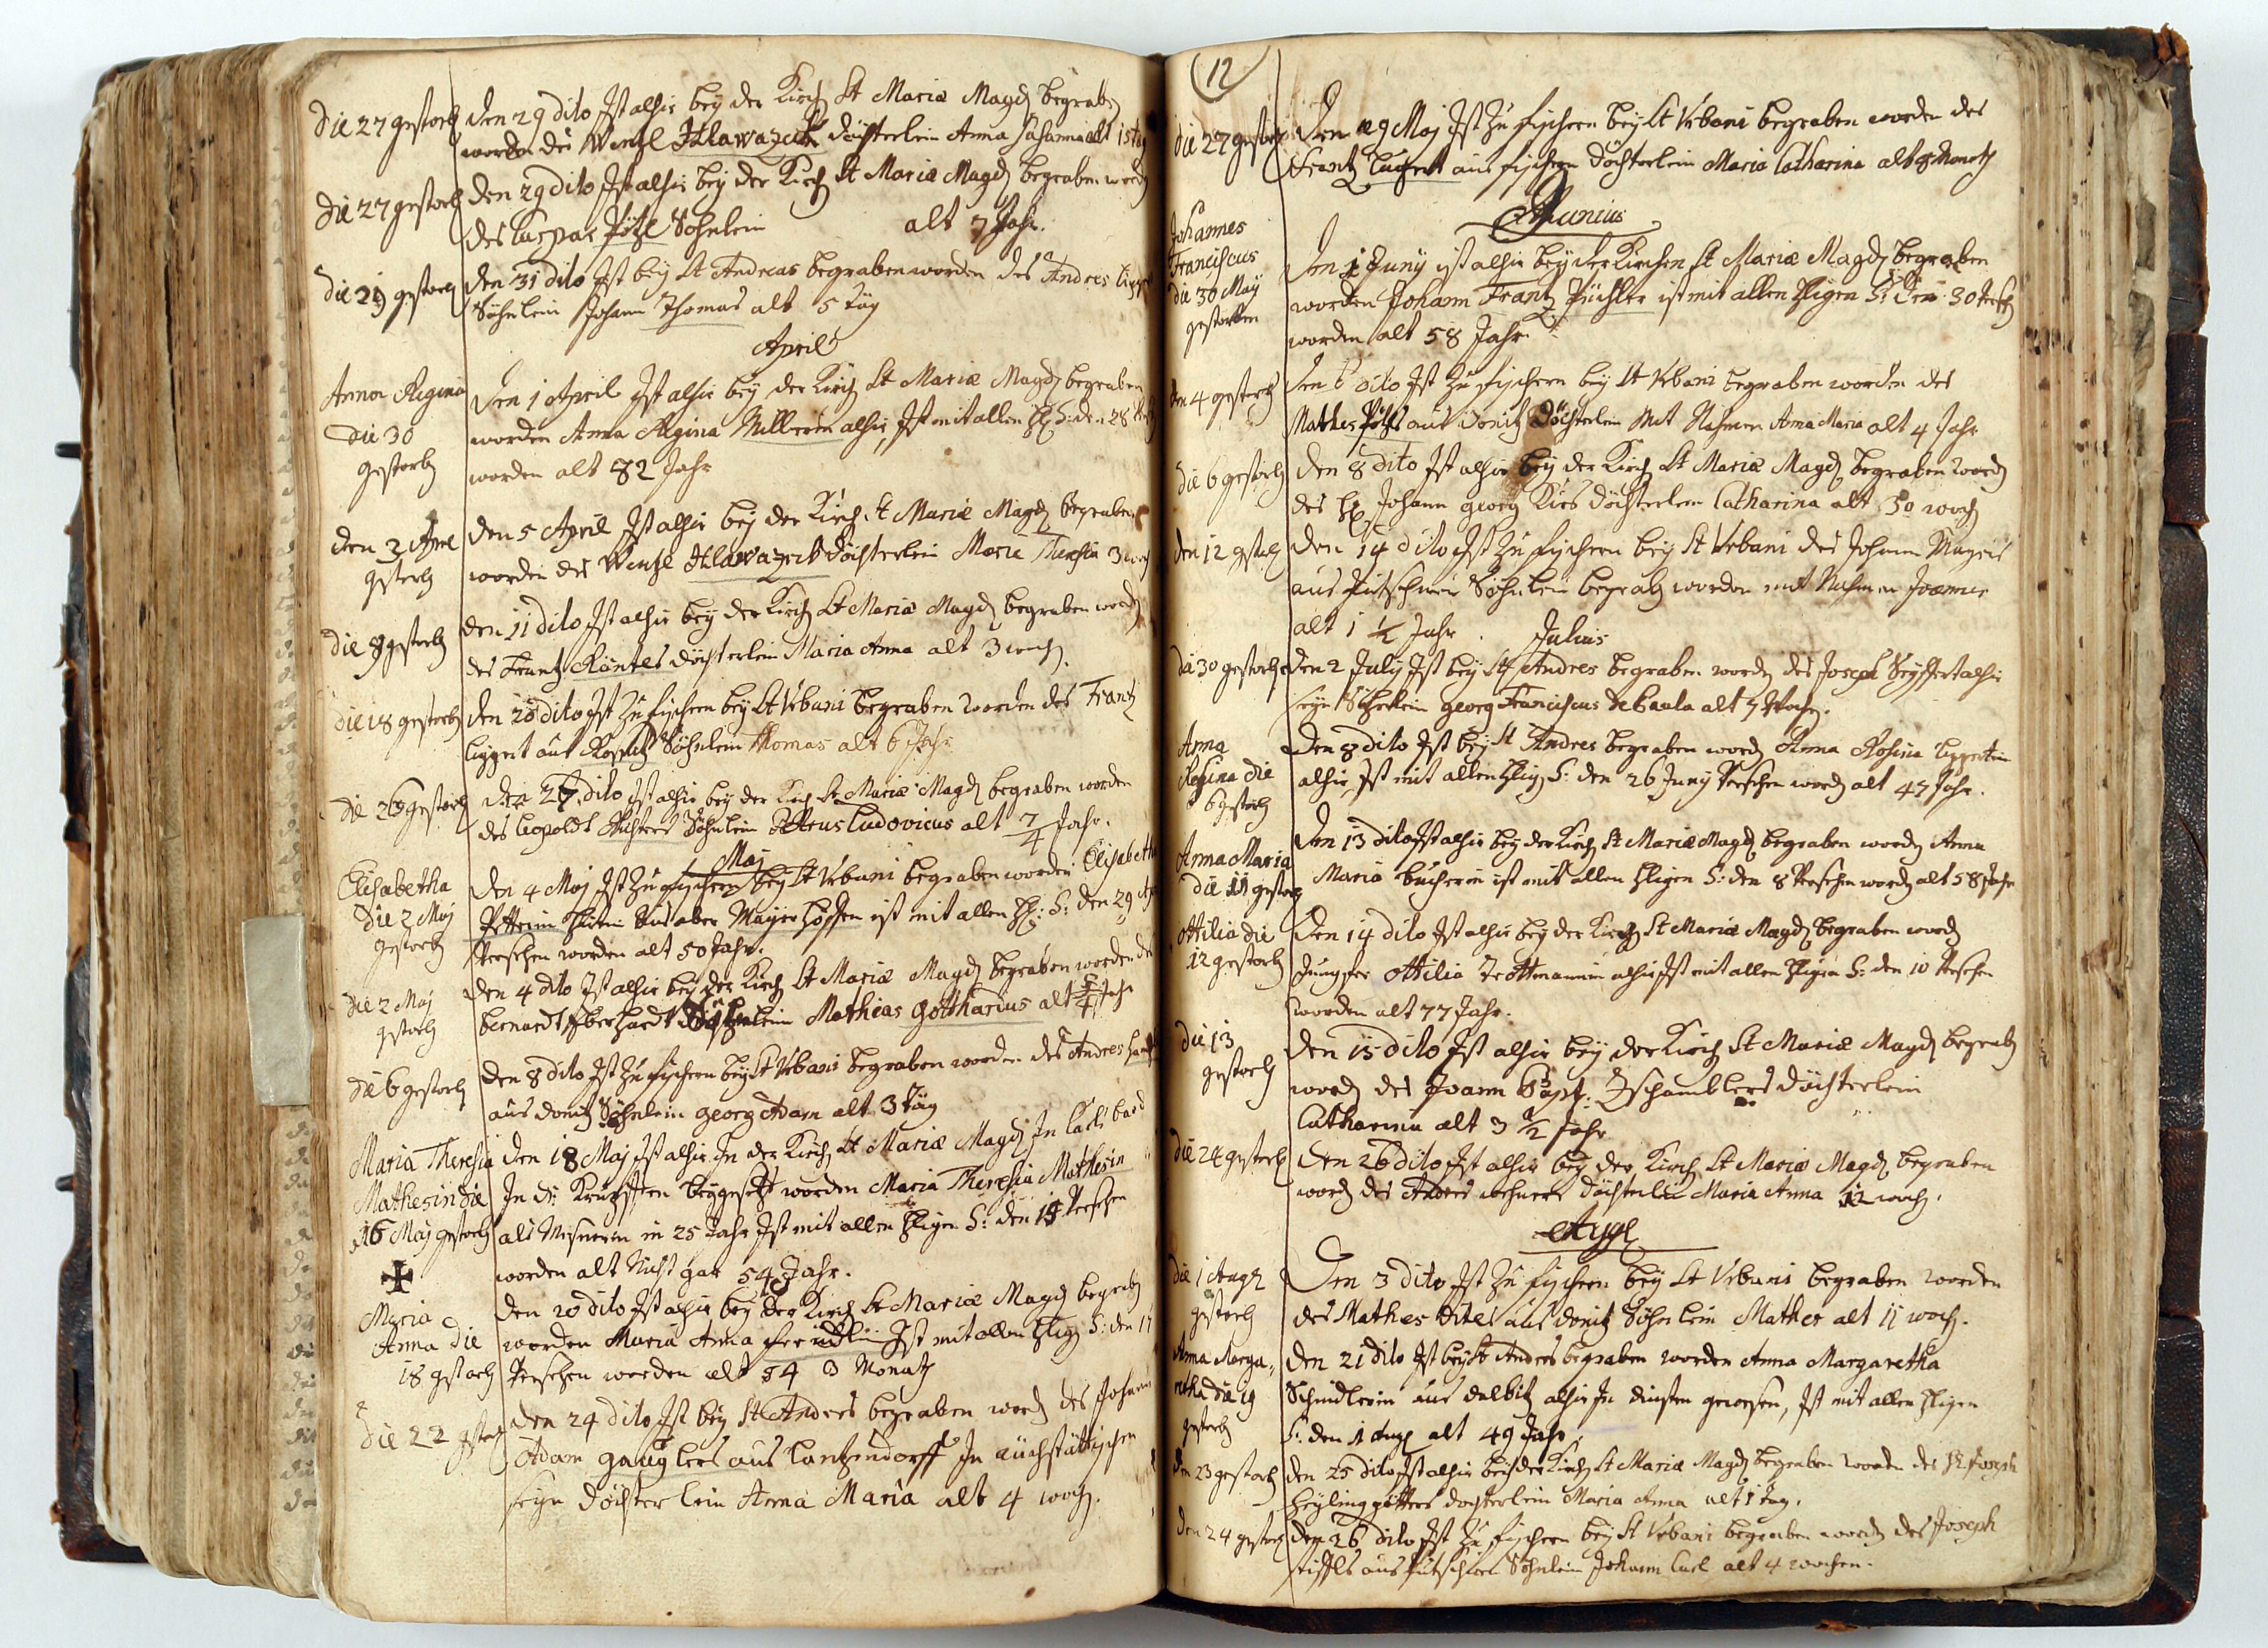 die 27 gestorb
den 29 dito Ist alhir bey der Kirch St Mariæ Magd begrab
worden des Wenzl Hlawazeck döchterlein Anna Johanna alt 15 tag
die 27 gestorb
den 29 dito Ist alhir bey der Kirch St Mariæ Magd begraben word
des Caspar Söhnlein alt 7 Jahr.
die 29 gestorb
den 31 dito Ist bey St Andreas begraben worden des Andres
Söhnlein Johann Thomas alt 5 täg
April
Anna Regina
die 30
gestorb
Den 1 April Ist alhir bey der Kirch St Mariæ Magd begraben
worden Anna Regina alhir, Ist mit allen S: den 28
worden alt 82 Jahr
den 3 April
gestorb
den 5 April Ist alhir bey der Kirch St Mariæ Magd begraben
worden des Wenzl Hlawazeck döchterlein Maria Theresia 3 woch
die 9 gestorb
den 11 dito Ist alhir bey der Kirch St Mariæ Magd begraben word
des Frantz döchterlein Maria Anna alt 3 woch
die 18 gestorb
den 20 dito Ist zu fischern bey St Urbani begraben worden des Frantz
aus Söhnlein Thomas alt 6 Jahr
die 26 gestorb
den 27 dito Ist alhir bey der Kirch St Mariæ Magd begraben worden
des Leopoldt Söhnlein Ludovicus alt 7/4 Jahr.
Maj
Elisabetha
die 2 Maj
gestorb
den 4 Maj Ist zu fischern bey St Urbani begraben worden Elisabetha
ist mit allen S: den 29
Versehen worden alt 50 Jahr.
die 2 Maj
gestorb
den 4 dito Ist alhir bey der Kirch St Mariæ Magd begraben worden des
bernardt Eberhardt Söhnlein Mathias Gotthardus alt 5/4 Jahr
die 6 gestorb
den 8 dito Ist zu fischern bey St Urbani begraben worden des Andres
aus donitz Söhnlein georg Adam alt 3 täg
Maria Theresia
Mathesin die
16 Maj gestorb
den 18 Maj Ist alhir In der Kirch St Mariæ Magd In
In beygesetzt worden Maria Theresia Mathesin
als in 25 Jahr Ist mit allen S: den 15 Versehen
worden alt Nicht gar 54 Jahr.
Maria
Anna die
18 gestorb
den 20 dito Ist alhir bey der Kirch St Mariæ Magd begrab
worden Maria Anna Ist mit allen S: den 17
Versehen worden alt 54 3 Monath
die 22 gestorb
den 24 dito Ist bey St Andres begraben word des Johann
Adam gauglers aus Lantzendorff In
seyn döchterlein Anna Maria alt 4 woch.
12
die 27 gestorb
Den 29 Maj Ist zu fischern bey St Urbani begraben worden des
Frantz aus fischern döchterlein Maria Catharina alt 8 Monath
Junius
Johannes
Franciscus
die 30 Maij
gestorben
Den 1 Juny ist alhir bey der Kirchen St Mariæ Magd begraben
worden Johann Frantz Püchler ist mit allen S: 30
worden alt 58 Jahr
den 4 gestorb
Den 6 dito Ist zu fischern bey St Urbani begraben worden des
Mathes aus donitz döchterlein Mit Nahmen Anna Maria alt 4 Jahr
die 6 gestorb
den 8 dito Ist alhir bey der Kirch St Mariæ Magd begraben word
des Johann georg döchterlein Catharina alt 30 woch
den 12 gestorb
den 14 dito Ist zu fischern bey St Urbani des Johann
aus Söhnlein begrab worden mit Nahmen Joannes
alt 1 1/2 Jahr.
Julius
die 30 gestorb
den 2 July Ist bey St Andres begraben word des Joseph alhir
seyn Söhnlein georg Franciscus de Paula alt 7 Woch.
Anna
Rosina die
6 gestorb
Den 8 dito Ist bey St Andres begraben word Anna Rosina
alhir, Ist mit allen S: den 26 Juny Versehen word alt 47 Jahr.
Anna Maria
die 11 gestorb
Den 13 dito Ist alhir bey der Kirch St Mariæ Magd begraben word Anna
Maria ist mit allen S: den 8 Versehen word alt 58 Jahr
Ottilia die
12 gestorb
Den 14 dito Ist alhir bey der Kirch St Mariæ Magd begraben word
Jungfer Ottilia Trottmannin alhir Ist mit allen S: den 10 Versehen
worden alt 77 Jahr.
die 13
gestorb
Den 15 dito Ist alhir bey der Kirch St Mariæ Magd begrab
word des Joann Bapt: Tschamblers döchterlein
Catharina alt 3 1/2 Jahr
die 24 gestorb
Den 26 dito Ist alhir bey der Kirch St Mariæ Magd begraben
word des Andres döchterlein Maria Anna 12 woch.
Aug
die 1 Aug
gestorb
Den 3 dito Ist zu fischern bey St Urbani begraben worden
des Mathes aus donitz Söhnlein Mathes alt 11 woch.
Anna Marga-
retha die 19
gestorb
den 21 dito Ist bey St Andres begraben worden Anna Margaretha
Schmidlerin aus dalbitz alhir In diensten gewesen, Ist mit allen
S: den 1 Aug alt 49 Jahr.
den 23 gestorb
den 25 dito Ist alhir bey der Kirch St Mariæ Magd begraben worden des Joseph
döchterlein Maria Anna alt 1 tag.
den 24 gestorb
den 26 dito Ist zu fischern bey St Urbani begraben word des Joseph
aus Söhnlein Johann Carl alt 4 wochen.